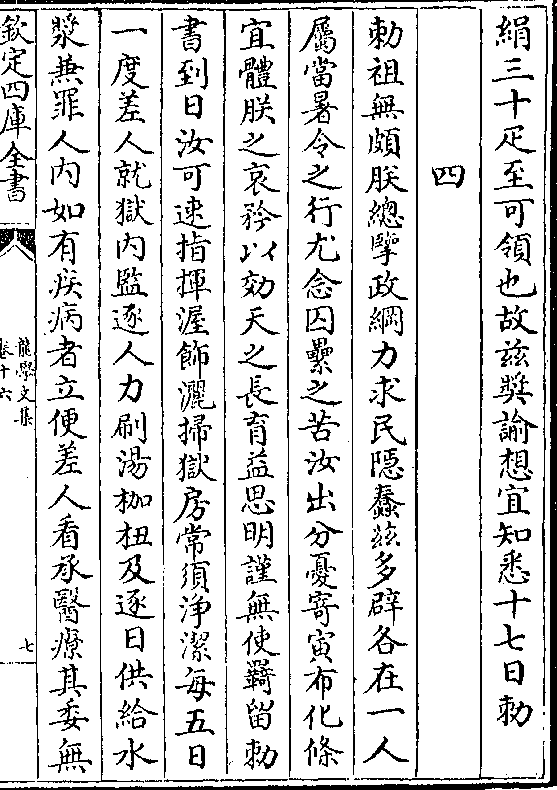 絹三十疋至可領也故茲奬諭想宜知悉十七日勅
四
勅祖無頗朕總擥政綱力求民隱蠢茲多辟各在一人
屬當暑令之行尤念囚纍之苦汝出分憂寄寅布化條
宜體朕之哀矜以効天之長育益思明謹無使覊留勅
書到日汝可速指揮渥飾灑掃獄房常須浄潔每五日
一度差人就獄内監逐人力刷湯枷杻及逐日供給水
漿無罪人内如有疾病者立便差人看承醫療其委無
欽定四庫全書
龍學文集
卷十六
七